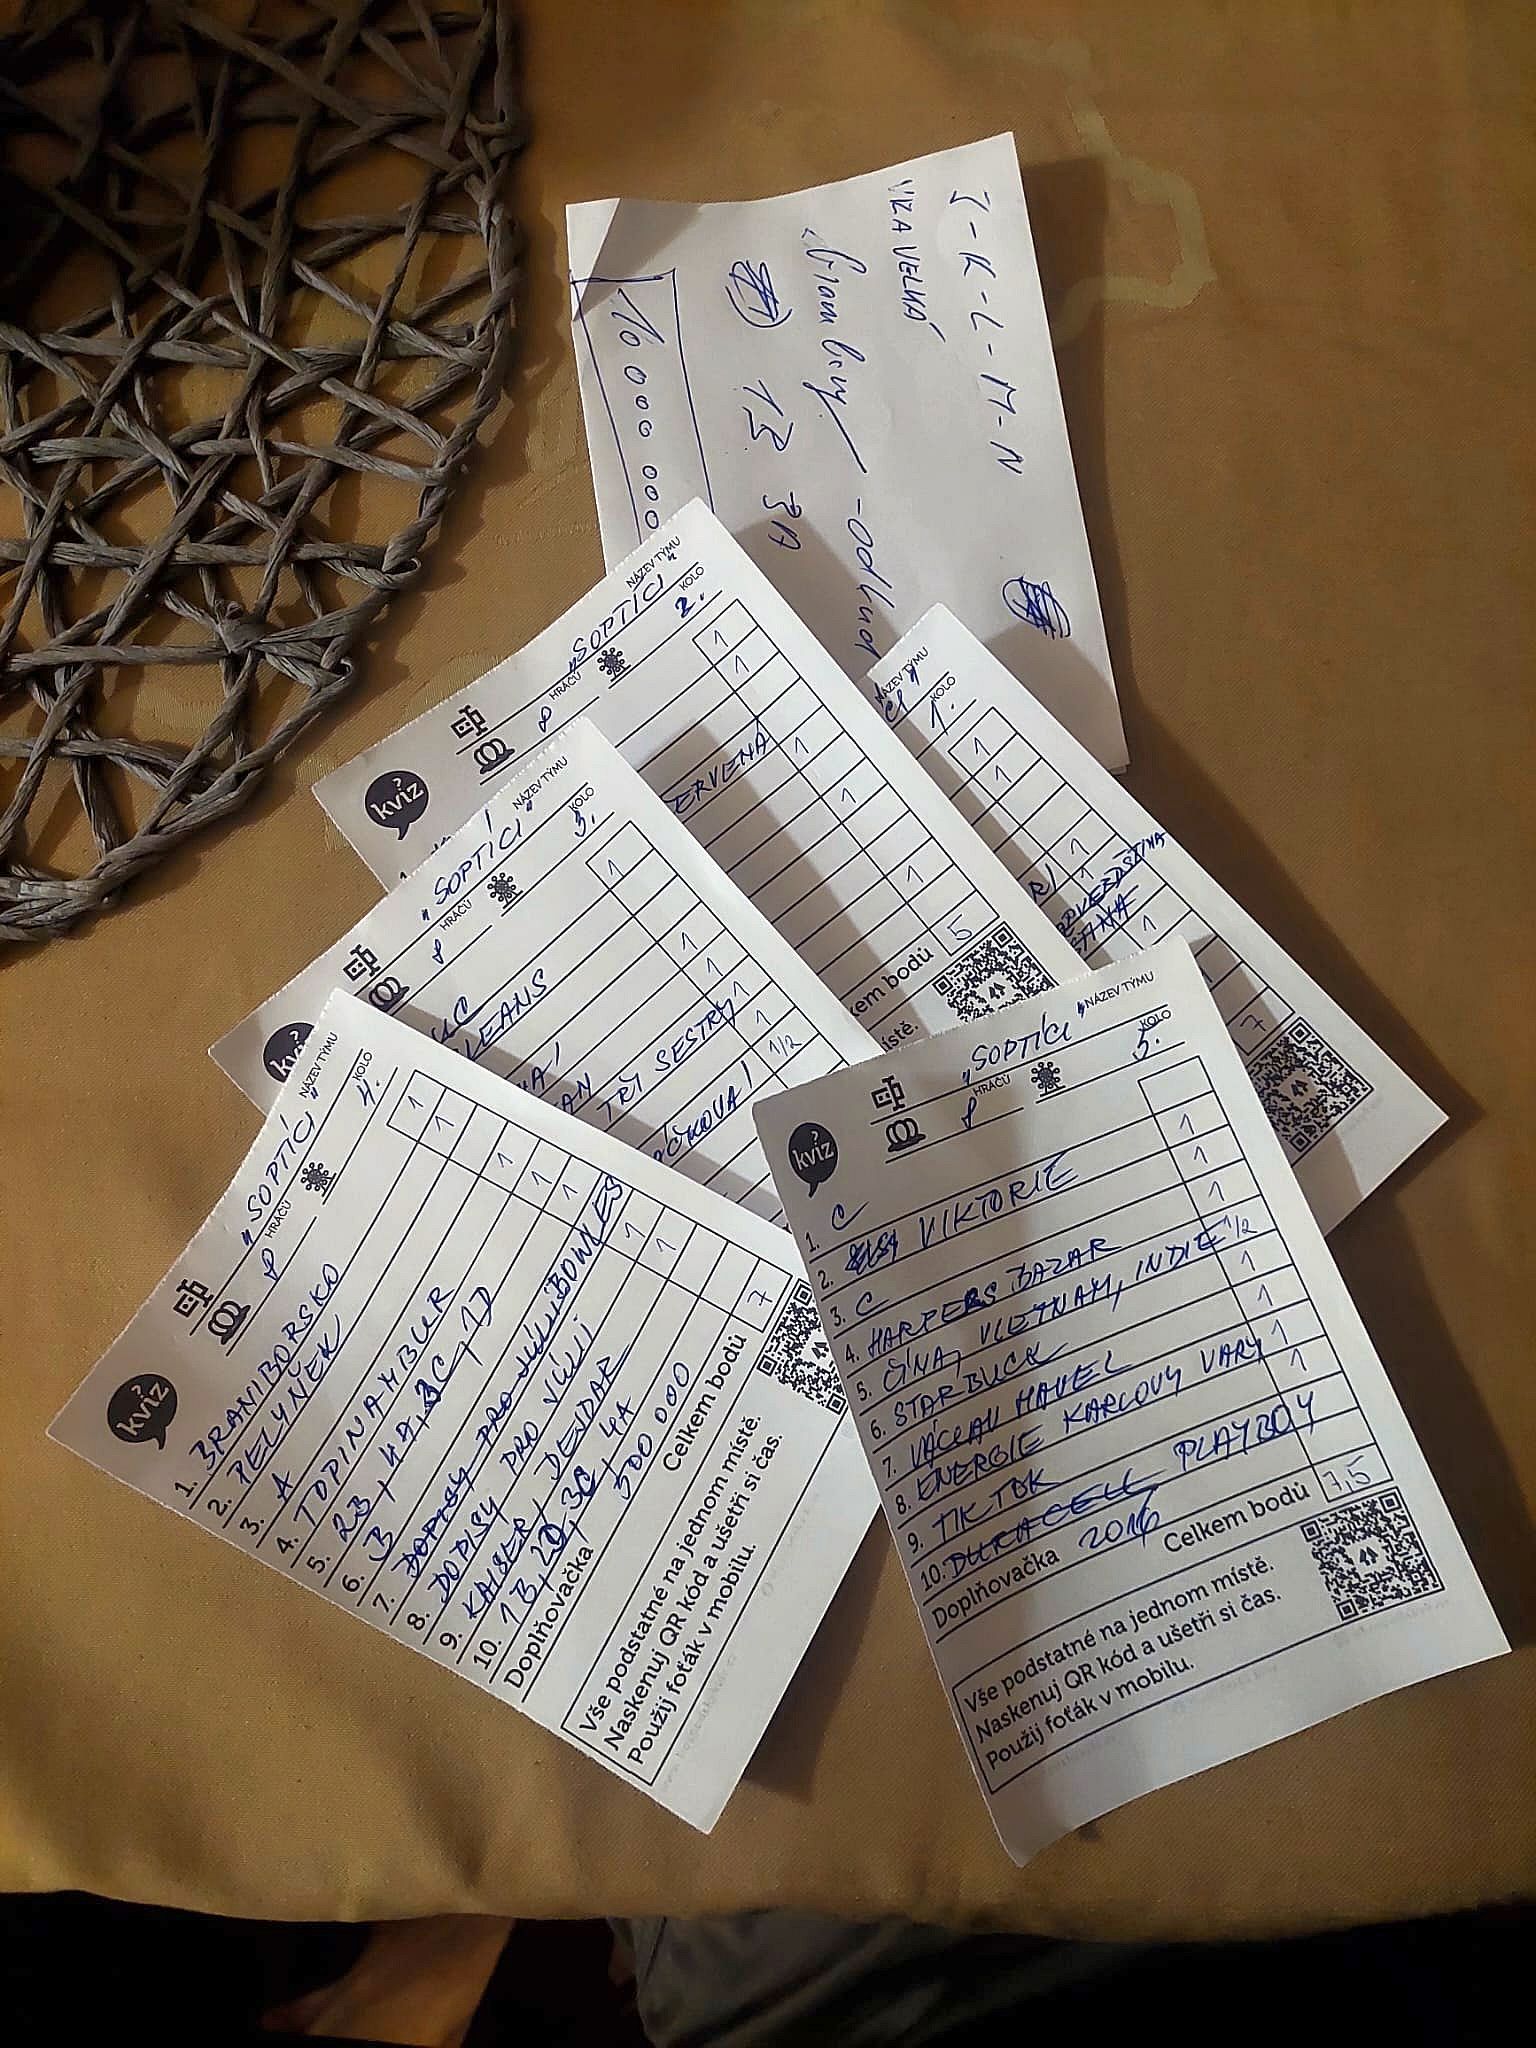 J-K-L-M-N
VIZA VELKÁ
13 3A
10 000 000
NÁZEV TÝMU
KOLO
1.
1
1
1
1
1
1
7
NÁZEV TÝMU
"SOPTÍCI"
HRÁČŮ
8
KOLO
2.
kvíz?
1
1
ERVENÁ
1
1
1
5
kem bodů
ístě.
NÁZEV TÝMU
"SOPTÍCI"
HRÁČŮ
8
KOLO
3.
1
LEANS
1
1
AN
1
TŘI SESTRY
1
1/2
NÁZEV TÝMU
"SOPTÍCI"
HRÁČŮ
8
KOLO
4.
kvíz?
1. BRANIBORSKO 1
2. PELYNĚK 1
3. A
4. TOPINAMBUR 1
5. 2B, 4A, 3C, 1D 1
6. B 1
7. DOPISY PRO JULII BOWLES
DOPISY PRO JULII 1
8. KAISER, DEJDAR 1
9. 1B, 2D, 3C, 4A
10. 
Doplňovačka 500 000
Celkem bodů 7
Vše podstatné na jednom místě.
Naskenuj QR kód a ušetři si čas.
Použij foťák v mobilu.
NÁZEV TÝMU
"SOPTÍCI"
HRÁČŮ
8
KOLO
5.
kvíz?
1. C
2. VIKTORIE 1
3. C 1
4. HARPERS BAZAR 1
5. ČÍNA, VIETNAM, INDIE 1/2
6. STARBUCK 1
7. VÁCLAV HAVEL 1
8. ENERGIE KARLOVY VARY 1
9. TIK TOK 1
10. DURACELL PLAYBOY
Doplňovačka 2016
Celkem bodů 7,5
Vše podstatné na jednom místě.
Naskenuj QR kód a ušetři si čas.
Použij foťák v mobilu.